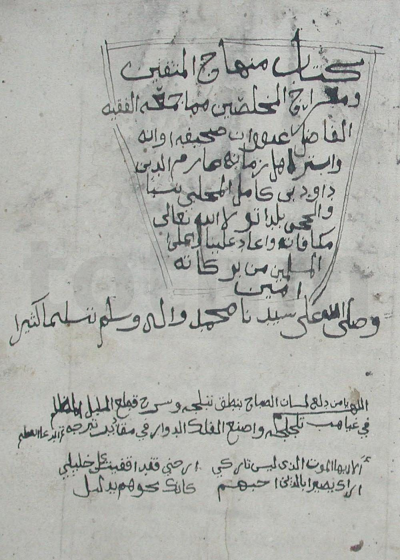 كتاب منهاج المتقين
ومعراج المخلصين مما جمعه الفقيه
الفاضل عنوان صحيفة اوانه
واستر اهل زمانه صارم الدين
داود بن كامل المحلي نسبا
والحجي بلدا تولا الله تعالى
مكافاته واعاد علينا وعلى
المسلمين من بركاته
امين
وصلى الله على سيدنا محمد واله وسلم تسليما كثيرا
اللهم يا من دلع لسان الصباح بنطق تبلجه وسرح قطع الليل المظلم
في غياهب تلجلجه واصنع الفلك الدوار في مقادير تبرجه
الا ايها الموت الذي ليس تاركي ارحني فقد افنيت كل خليلي
اراك بصيرا بالذين احبهم كانك نحوهم بدليل